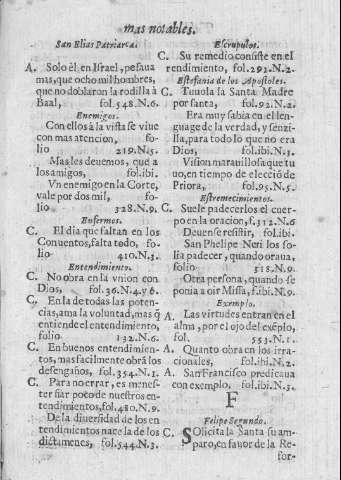 mas notables.
San Elias Patriarca.
A. Solo él en Israel, pesaua
mas, que ocho mil hombres,
que no doblaron la rodilla à
Baal, fol. 548. N. 6.
Enemigos.
Con ellos à la vista se viue
con mas atencion, fo-
lio 219. N. 5.
Mas les deuemos, que a
los amigos, fol. ibi.
Vn enemigo en la Corte,
vale por dos mil, fo-
lio 328. N. 9.
Enfermos.
C. El dia que faltan en los
Conuentos, falta todo, fo-
lio 410. N. 3.
Entendimiento.
C. No obra en la vnion con
Dios, fol. 36. N. 4. y 6.
C. En la de todas las poten-
cias, ama la voluntad, mas q̃
entiende el entendimiento,
folio 132. N. 6.
C. En buenos entendimien-
tos, mas facilmente obrã los
desengaños, fol. 354. N. 1.
C. Para no errar, es menes-
ter fiar poco de nuestros en-
tendimientos, fol. 480. N. 9.
De la diuersidad de los en
tendimientos nace la de los
dictamenes, fol. 544. N. 3.
Escrupulos.
C. Su remedio consiste en el
rendimiento, fol. 292. N. 2.
Estefania de los Apostoles.
C. Tuuola la Santa Madre
por santa, fol. 92. N. 2.
Era muy sabia en el len-
guage de la verdad, y senzi-
lla, para todo lo que no era
Dios, fol. ibi. N. 3.
Vision marauillosa que tu
uo, en tiempo de elecciõ de
Priora, fol. 95. N. 5.
Estremecimientos.
C. Suele padecerlos el cuer-
po en la oracion, f. 312. N. 6
Deuense resistir, fol. ibi.
San Phelipe Neri los so-
lia padecer, quando oraua,
folio 518. N. 9.
Otra persona, quando se
ponia a oir Missa, f. ibi. N. 9.
Exemplo.
A. Las virtudes entran en el
alma, por el ojo del exẽplo,
fol. 553. N. 1.
A. Quanto obra en los irra-
cionales, fol. ibi. N. 2.
A. San Francisco predicaua
con exemplo, fol. ibi. N. 3.
F
Felipe Segundo.
C. SOlicita la Santa su am-
paro, en fauor de la Re-
for-